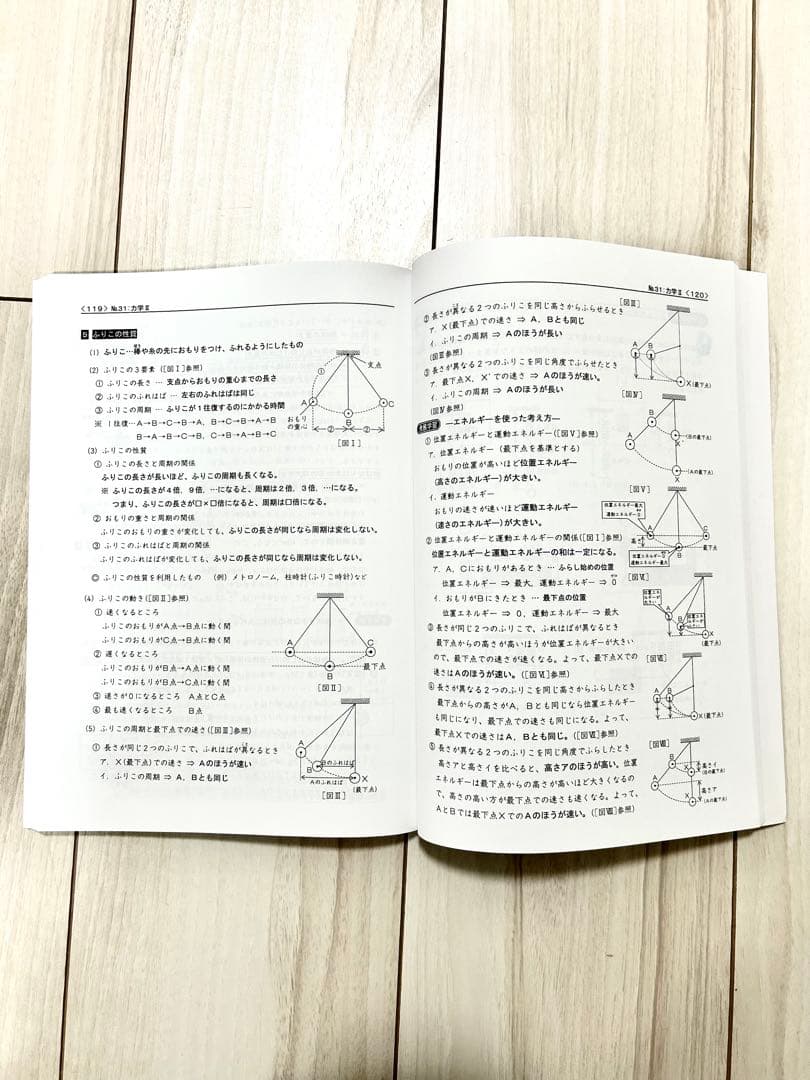 〈119〉 №31:力学Ⅱ
5 ふりこの性質
(1) ふりこ…棒や糸の先におもりをつけ、ふれるようにしたもの
(2) ふりこの3要素([図Ⅰ]参照)
① ふりこの長さ … 支点からおもりの重心までの長さ
② ふりこのふれはば … 左右のふれはばは同じ
③ ふりこの周期 … ふりこが1往復するのにかかる時間
※ 1往復…A→B→C→B→A, B→C→B→A→B
B→A→B→C→B, C→B→A→B→C
支点
①
A
B
C
おもり
の重心
②
②
[図Ⅰ]
(3) ふりこの性質
① ふりこの長さと周期の関係
ふりこの長さが長いほど、ふりこの周期も長くなる。
※ ふりこの長さが4倍, 9倍, …になると、周期は2倍, 3倍, …になる。
つまり、ふりこの長さが□×□倍になると、周期は□倍になる。
② おもりの重さと周期の関係
ふりこのおもりの重さが変化しても、ふりこの長さが同じなら周期は変化しない。
③ ふりこのふれはばと周期の関係
ふりこのふれはばが変化しても、ふりこの長さが同じなら周期は変化しない。
◎ ふりこの性質を利用したもの (例) メトロノーム, 柱時計(ふりこ時計)など
(4) ふりこの動き([図Ⅱ]参照)
① 速くなるところ
ふりこのおもりがA点→B点に動く間
ふりこのおもりがC点→B点に動く間
② 遅くなるところ
ふりこのおもりがB点→A点に動く間
ふりこのおもりがB点→C点に動く間
③ 速さが0になるところ A点とC点
④ 最も速くなるところ B点
A
C
B
最下点
[図Ⅱ]
(5) ふりこの周期と最下点での速さ([図Ⅲ]参照)
① 長さが同じ2つのふりこで、ふれはばが異なるとき
ア. X(最下点)での速さ ⇒ Aのほうが速い
イ. ふりこの周期 ⇒ A, Bとも同じ
A
B
Bのふれはば
Aのふれはば
X
(最下点)
[図Ⅲ]
№31:力学Ⅱ 〈120〉
② 長さが異なる2つのふりこを同じ高さからふらせるとき
ア. X(最下点)での速さ ⇒ A, Bとも同じ
イ. ふりこの周期 ⇒ Aのほうが長い
(図Ⅲ参照)
③ 長さが異なる2つのふりこを同じ角度でふらせたとき
ア. 最下点X, X'での速さ ⇒ Aのほうが速い。
イ. ふりこの周期 ⇒ Aのほうが長い
(図Ⅳ参照)
[図Ⅲ]
A
B
X
(最下点)
[図Ⅳ]
B
A
X'
(Bの最下点)
X
(Aの最下点)
発展学習 ―エネルギーを使った考え方―
① 位置エネルギーと運動エネルギー([図Ⅴ]参照)
ア. 位置エネルギー (最下点を基準とする)
おもりの位置が高いほど位置エネルギー
(高さのエネルギー)が大きい。
イ. 運動エネルギー
おもりの速さが速いほど運動エネルギー
(速さのエネルギー)が大きい。
② 位置エネルギーと運動エネルギーの関係([図Ⅰ]参照)
位置エネルギーと運動エネルギーの和は一定になる。
ア. A, Cにおもりがあるとき … ふらし始めの位置
位置エネルギー ⇒ 最大, 運動エネルギー ⇒ 0
イ. おもりがBにきたとき … 最下点の位置
位置エネルギー ⇒ 0, 運動エネルギー ⇒ 最大
③ 長さが同じ2つのふりこで、ふれはばが異なるとき
最下点からの高さが高いほうが位置エネルギーが大きい
ので、最下点での速さが速くなる。よって、最下点Xでの
速さはAのほうが速い。([図Ⅵ]参照)
④ 長さが異なる2つのふりこを同じ高さからふらしたとき
最下点からの高さがA, Bとも同じなら位置エネルギー
も同じになり、最下点での速さも同じになる。よって、
最下点Xでの速さはA, Bとも同じ。([図Ⅶ]参照)
⑤ 長さが異なる2つのふりこを同じ角度でふらしたとき
高さアと高さイを比べると、高さアのほうが高い。位置
エネルギーは最下点からの高さが高いほど大きくなるの
で、高さの高い方が最下点での速さも速くなる。よって、
AとBでは最下点XでのAのほうが速い。([図Ⅷ]参照)
[図Ⅴ]
位置エネルギー最大
運動エネルギー0
A
C
高さ
B
最下点
位置エネルギー0
運動エネルギー最大
[図Ⅵ]
位置エネ
ルギーが
大きい
A
B
X
(最下点)
[図Ⅶ]
A
B
X(最下点)
[図Ⅷ]
B
高さイ
A
X'
(Bの最下点)
高さア
X
(Aの最下点)